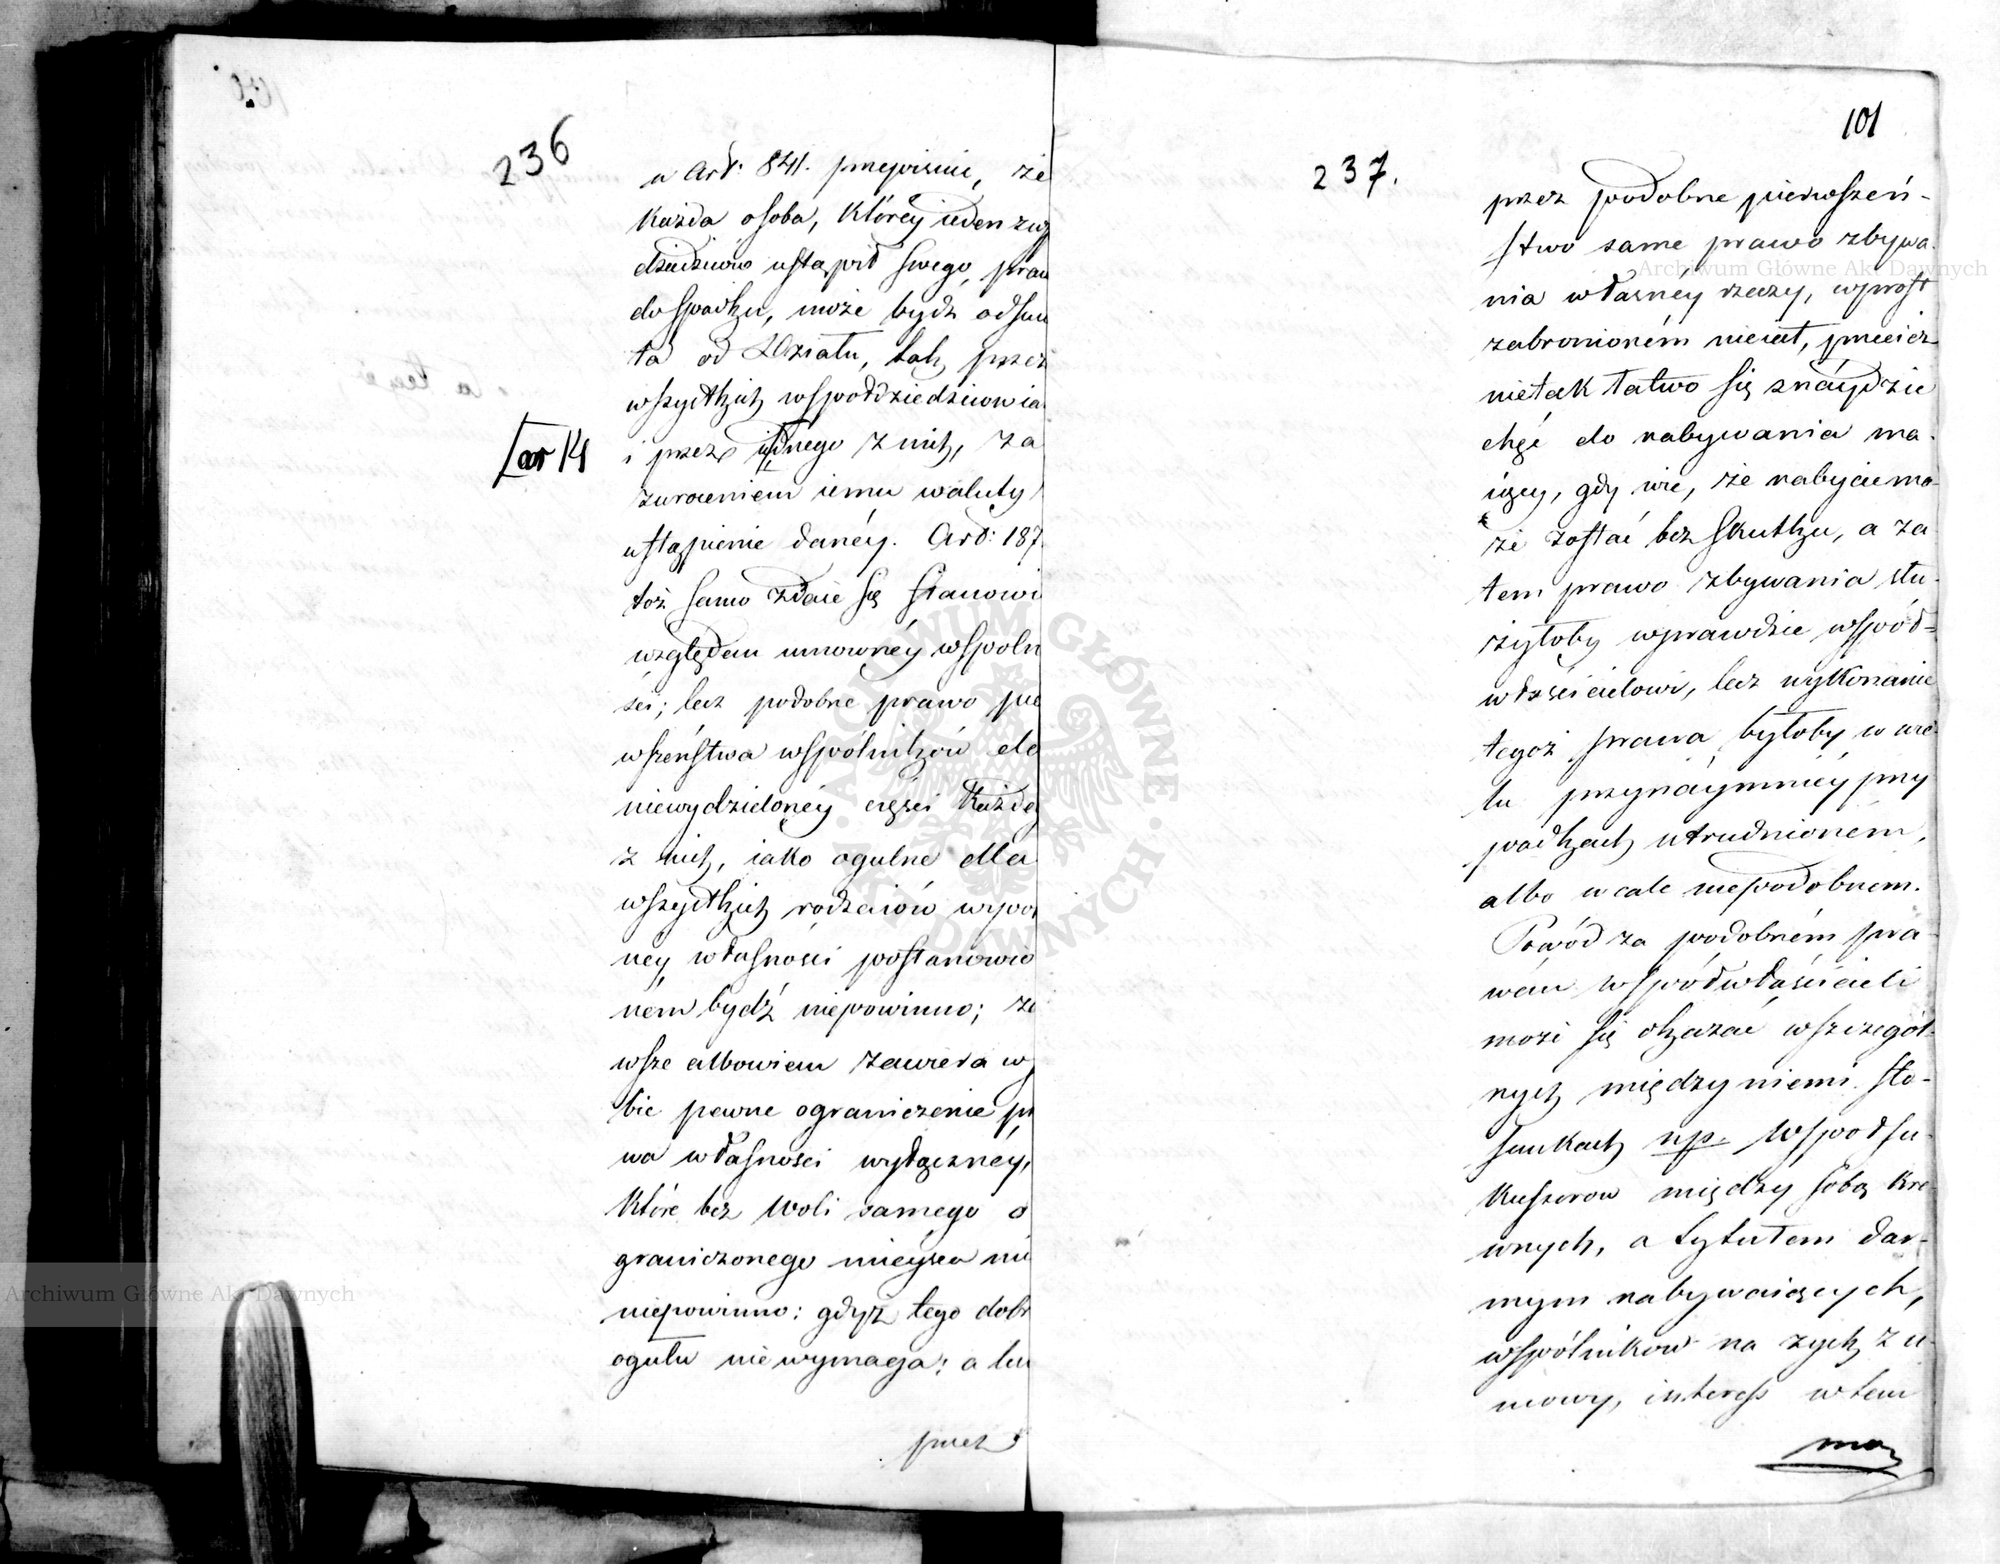 236
w Art: 841. przepisuie, że
każda osoba, któréy ieden z w
dziedziców ustąpił swego praw
do spadku, może bydź odsun
ta od Działu, tak przez
wszystkich wspołdziedziców ia
i przez iednego z nich, za
zwroceniem iemu waluty
ustąpienie danéy. Art: 187
toż samo zdaie się stanowi
względem umownéy wspoln
ści; lecz podobne prawo pie
wszeństwa wspólników do
niewydzielonéy części każdeg
z nich, iako ogulne dla
wszystkich rodzaiów wspo
néy własności postanowio
ném bydź niepowinno; za
wsze albowiem zawiera w
bie pewne ograniczenie pr
wa własności wyłącznéy,
które bez woli samego o
graniczonego mieysca mi
niepowinno: gdyż tego dobr
ogułu nie wymaga; a lu
przez
101
237.
przez podobne pierwszeń-
stwo same prawo zbywa-
nia własney rzeczy, wprost
zabronioném nieiest, przecież
nietak łatwo się znaydzie
chęć do nabywania ma-
iący, gdy wie, że nabycie mo-
że zostać bez skutku, a za
tem prawo zbywania słu-
żyłoby wprawdzie współ-
właścicielowi, lecz wykonanie
tegoż prawa byłoby w wie-
lu przynáymniéy przy
padkach utrudnioném,
albo wcale niepodobnem.
Powód za podobném pra-
wem współwłaścicieli
może się okazać w szczegól-
nych między niemi sto-
sunkach np. Wspołsu-
kussorow między sobą kre
wnych, a tytułem dar-
mym nabywaiących,
wspólnikow na zysk z u-
mowy, interess w tem
ma